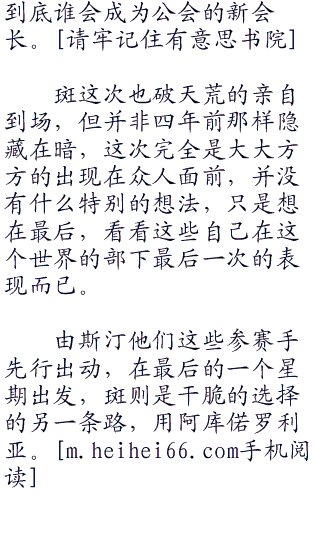 到底谁会成为公会的新会
长。[请牢记住有意思书院]
斑这次也破天荒的亲自
到场，但并非四年前那样隐
藏在暗，这次完全是大大方
方的出现在众人面前，并没
有什么特别的想法，只是想
在最后，看看这些自己在这
个世界的部下最后一次的表
现而已。
由斯汀他们这些参赛手
先行出动，在最后的一个星
期出发，斑则是干脆的选择
的另一条路，用阿库偌罗利
亚。[m.heihei66.com手机阅
读]